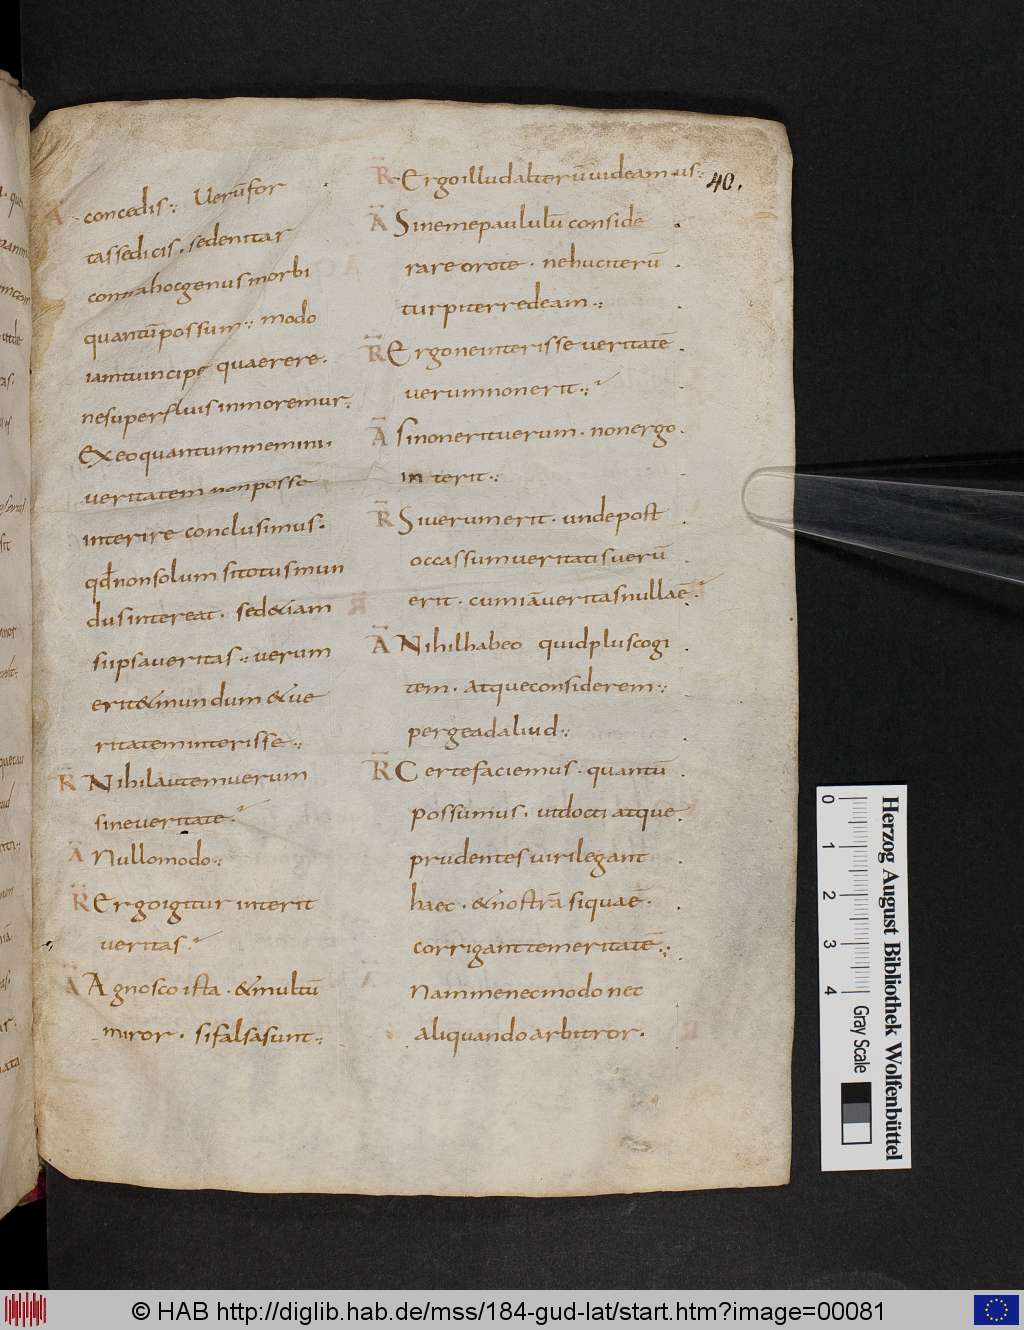 40.
A concedis :, Uerū for
tasse dicis . sed enitar
contra hoc genus morbi
quantū possum :, modo
iam tu incipe quaerere .
ne superfluis inmoremur .
Ex eo quantum memini .
ueritatem non posse
interire conclusimus .
qđ non solum si totus mun
dus intereat . sed &iam
si ipsa ueritas :, uerum
erit & mundum & ue
ritatem interisse :,
R Nihil autem uerum
sine ueritate .
A Nullo modo :,
R Ergo igitur interit
ueritas .
A Agnosco ista . & multū
miror . si falsa sunt :,
R Ergo illud alterū uideamus :,
A Sine me paululū conside
rare oro te . ne huc iterū
turpiter redeam :,
R Ergone interisse ueritatē
uerum non erit :,
A Si non erit uerum . non ergo
interit :,
R Si uerum erit . unde post
occassum ueritatis uerū
erit . cum iā ueritas nulla ē .
A Nihil habeo quid plus cogi
tem . atque considerem :,
perge ad aliud :,
R Certe faciemus . quantū
possumus . ut docti atque
prudentes uiri legant
haec . & nostrā siqua ē .
corrigant temeritatē :,
nam me nec modo nec
aliquando arbitror .
0 1 2 3 4
Gray Scale
Herzog August Bibliothek Wolfenbüttel
© HAB http://diglib.hab.de/mss/184-gud-lat/start.htm?image=00081